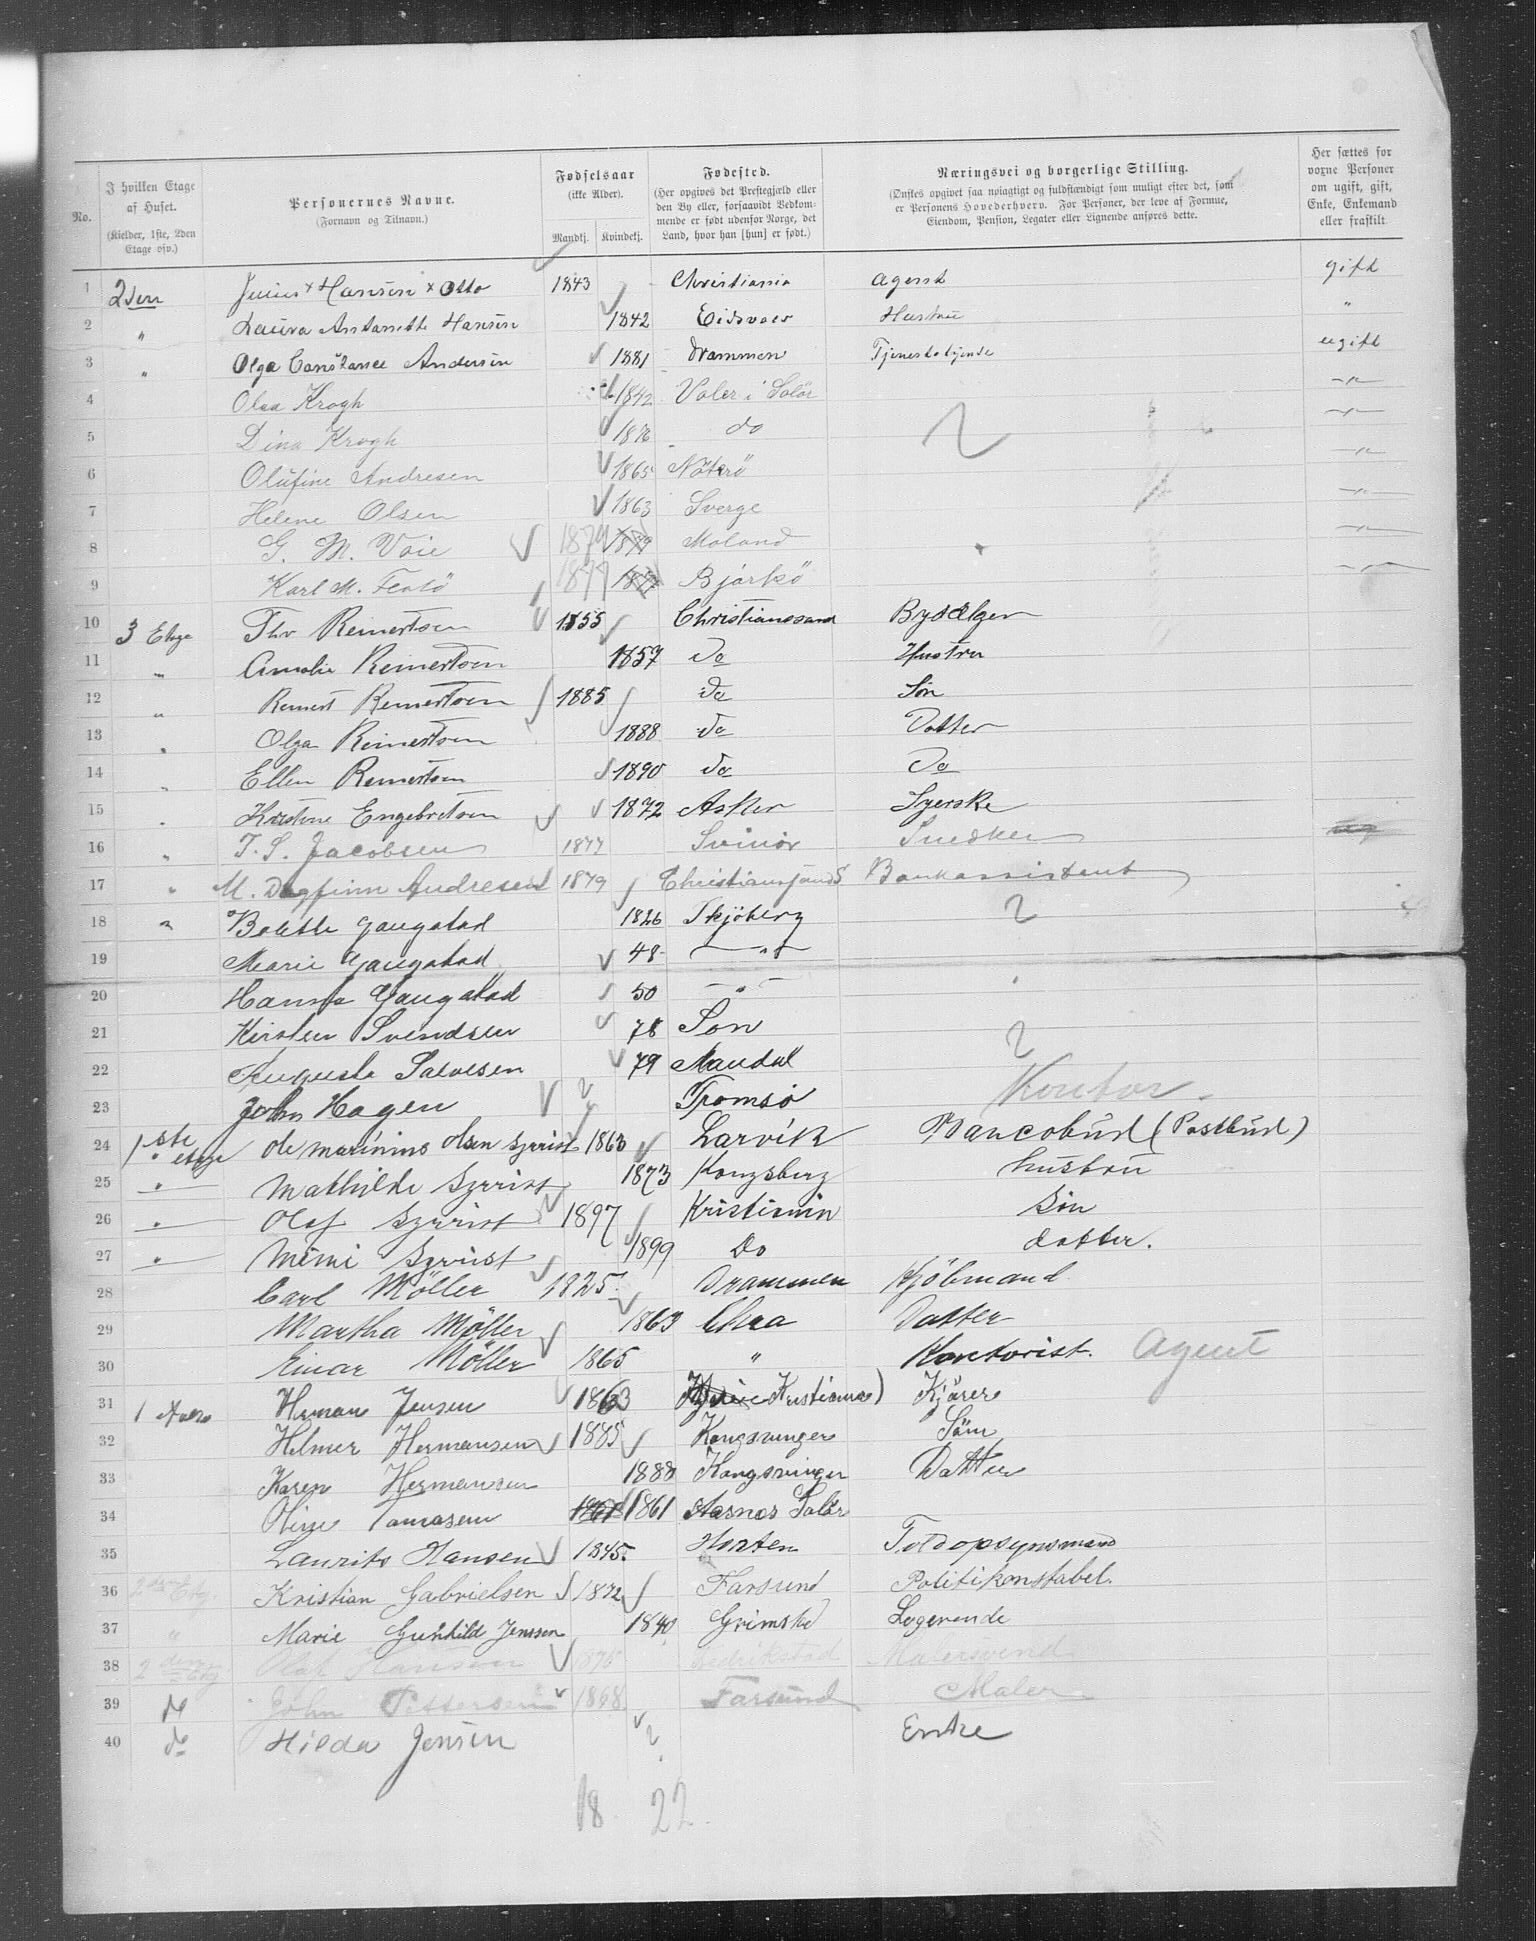 No.
I hvilken Etage af Huset. (Kielder, 1ste, 2den Etage osv.)
Personernes Navne. (Fornavn og Tilnavn.)
Fødselsaar (ikke Alder). Mandkj. Kvindekj.
Fødested. (Her opgives det Prestegjæld eller den By eller, forsaavidt Vedkommende er født udenfor Norge, det Land, hvor han [hun] er født.)
Næringsvei og borgerlige Stilling. (Ønskes opgivet saa nøiagtigt og fuldstændigt som muligt efter det, som er Personens Hovederhverv. For Personer, der leve af Formue, Eiendom, Pension, Legater eller Lignende anføres dette.
Her sættes for voxne Personer om ugift, gift, Enke, Enkemand eller fraskilt
1 2den Julius Hansen Otto 1843 Christiania Agent gift
2 " Laura Antonette Hansen 1842 Eidsvold Hustru "
3 " Olga Constance Andersen 1881 Drammen Tjenestetyende ugift
4 Olea Krogh 1842 Valer i Solør -"-
5 Dina Krogh 1876 do -"-
6 Olufine Andresen 1865 Nöterö -"-
7 Helene Olsen 1863 Sverge -"-
8 G. M. Voie 1879 Moland -"-
9 Karl M. 1877 Bjarkö -"-
10 3 Etage Thv Reinertsen 1855 Christianssand Bysælger
11 " Amalie Reinertsen 1857 Do Hustru
12 " Reinert Reinertsen 1885 Do Søn
13 " Olga Reinertsen 1888 Do Datter
14 " Ellen Reinertsen 1890 Do Do
15 " Kristine Engebretsen 1872 Asker Syerske
16 " T. S. Jacobsen 1877 Svinör Snedker
17 " M. Dagfinn Andresen 1879 Christianssund S Bankassistent
18 " Bolette Gaugstad 1826 Skjöberg
19 Marie Gaugstad 48 -"-
20 Hanna Gaugstad 50 -"-
21 Kirsten Svendsen 78 Son
22 Auguste Salvesen 79 Mandal
23 John Hagen Tromsö Kontor
24 1ste etage Ole Marinius Olsen Syrrist 1863 Larvik Bancobud (Postbud)
25 -"- Mathilde Syrrist 1873 Kongsberg hustru
26 -"- Olaf Syrrist 1897 Kristiania Sön
27 -"- Mimi Syrrist 1899 Do datter.
28 Carl Möller 1825 Drammen Kjöbmand
29 Martha Möller 1863 Chra Datter
30 Einar Möller 1865 " Kontorist. Agent
31 Herman Jensen 1863 Kristiania) Kjörer
32 Helmer Hermansen 1885 Kongsvinger Sön
33 Karen Hermansen 1888 Kongsvinger Datter
34 Oline 1861 Aasnes Solör
35 Laurits Hansen 1845 Horten Toldopsynsmand
36 2den Etg Kristian Gabrielsen 1872 Farsund Politikonstabel.
37 " Marie Gunhild Jenssen 1840 Grimstad Logerende
38 2den Etg Olaf Hansen 1875 Fredrikstad Malersvend
39 do John Pettersen 1868 Farsund Maler
40 do Hilda Jensen Enke
18 22